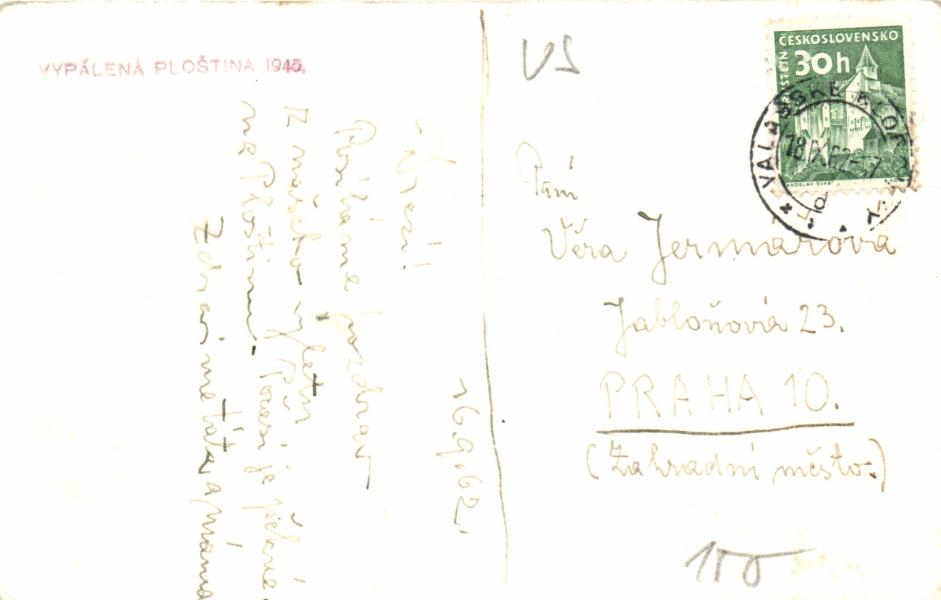 VYPÁLENÁ PLOŠTINA 1945.
16.9.62.
Drazí!
Posíláme pozdrav
z našeho výletu
na Ploštinu. Počasí je pěkné
Zdravíme táta a máma
VS
ČESKOSLOVENSKO
30h
VALAŠSKÉ KLOBOUKY
Paní
Věra Jermářová
Jabloňová 23.
PRAHA 10.
(Zahradní město.)
100